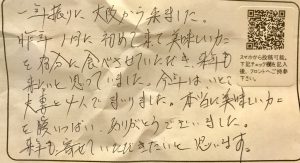 一年振りに大阪から来ました。
昨年1月に初めて来て美味しいカニ
を存分に食べさせていただき、来年も
来たいと思っていました。今年はいとこ
夫妻と4人でまいりました。本当に美味しいカニ
を腹いっぱい ありがとうございました。
来年も寄せていただきたいと思います。
スマホから投稿可能。
下記チェック欄を記入
後、フロントへご持参
下さい。